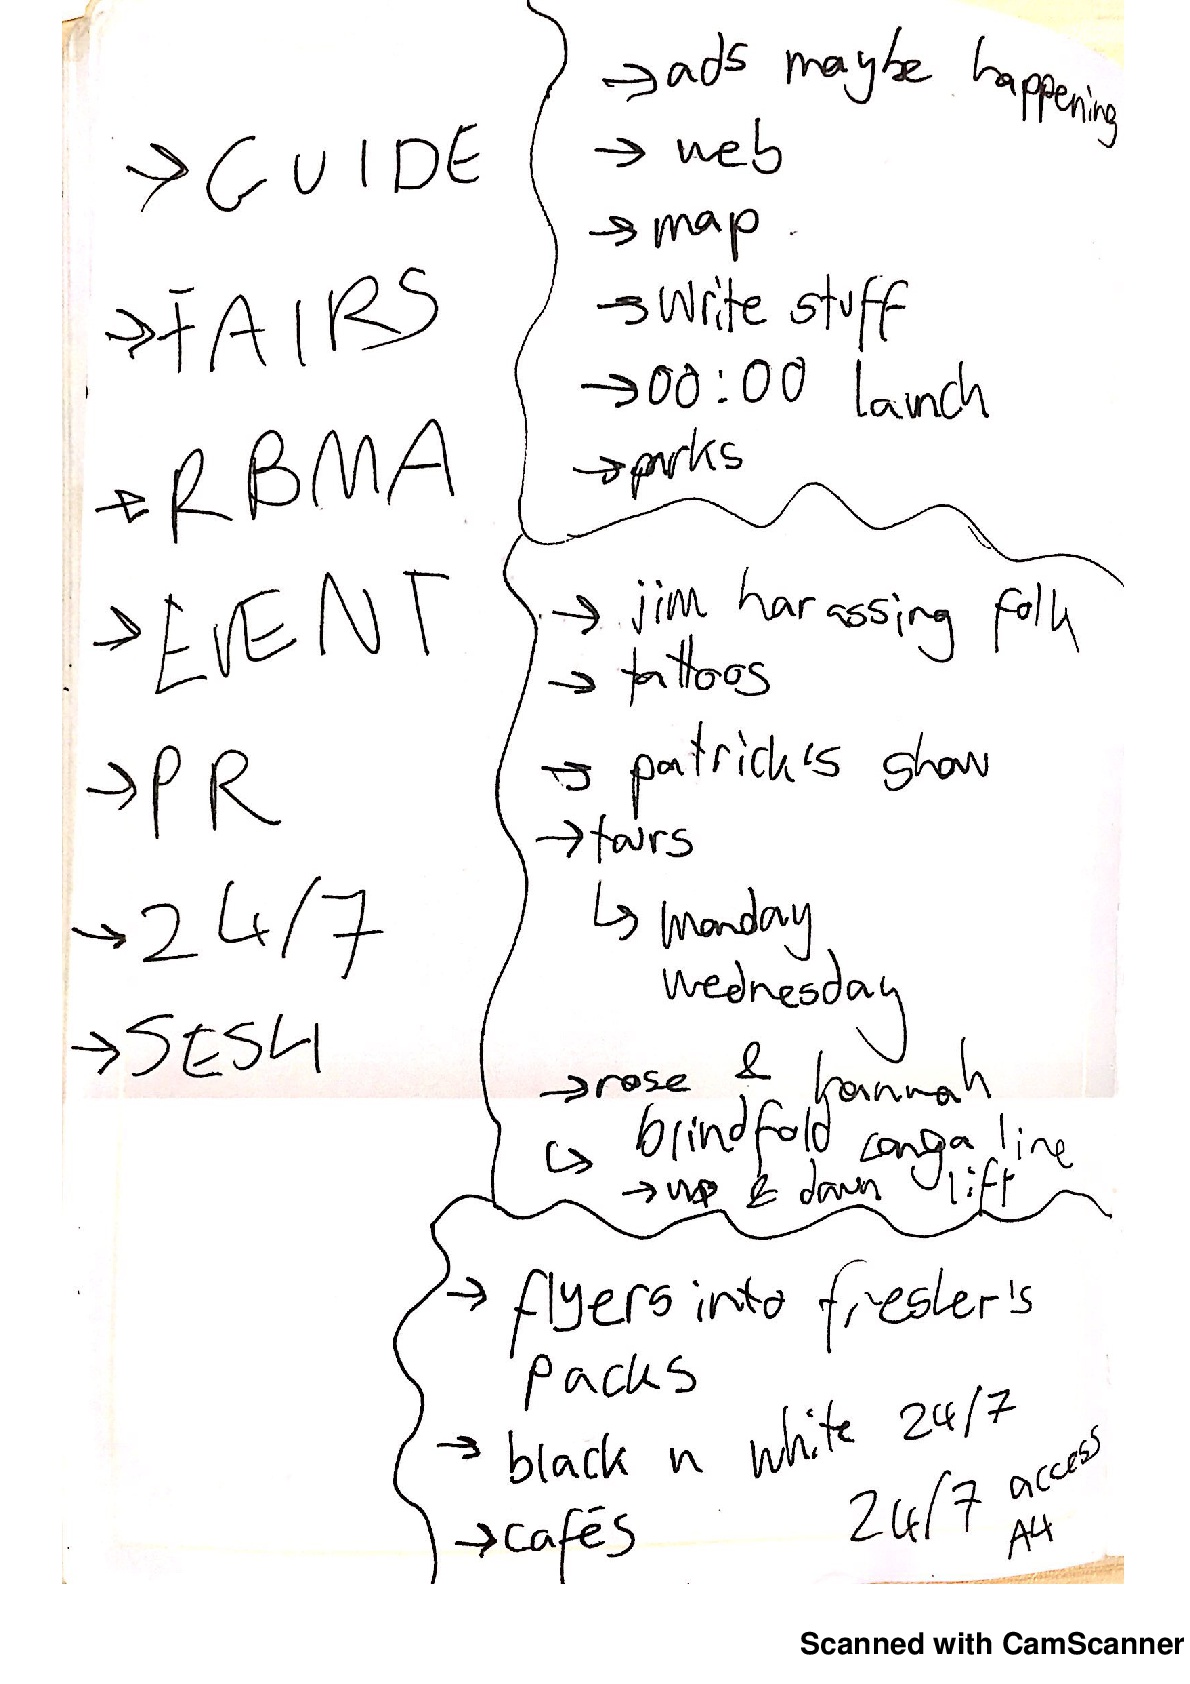 → GUIDE
→ FAIRS
→ RBMA
→ EVENT
→ PR
→ 24/7
→ SESH
→ ads maybe happening
→ web
→ map
→ write stuff
→ 00:00 launch
→ parks
→ jim harassing folk
→ tattoos
→ patrick's show
→ fairs
↳ monday
wednesday
→ rose & hannah
↳ blindfold conga line
→ up & down lift
→ flyers into fresher's
packs
→ black n white 24/7
24/7 access
A4
→ cafés
Scanned with CamScanner